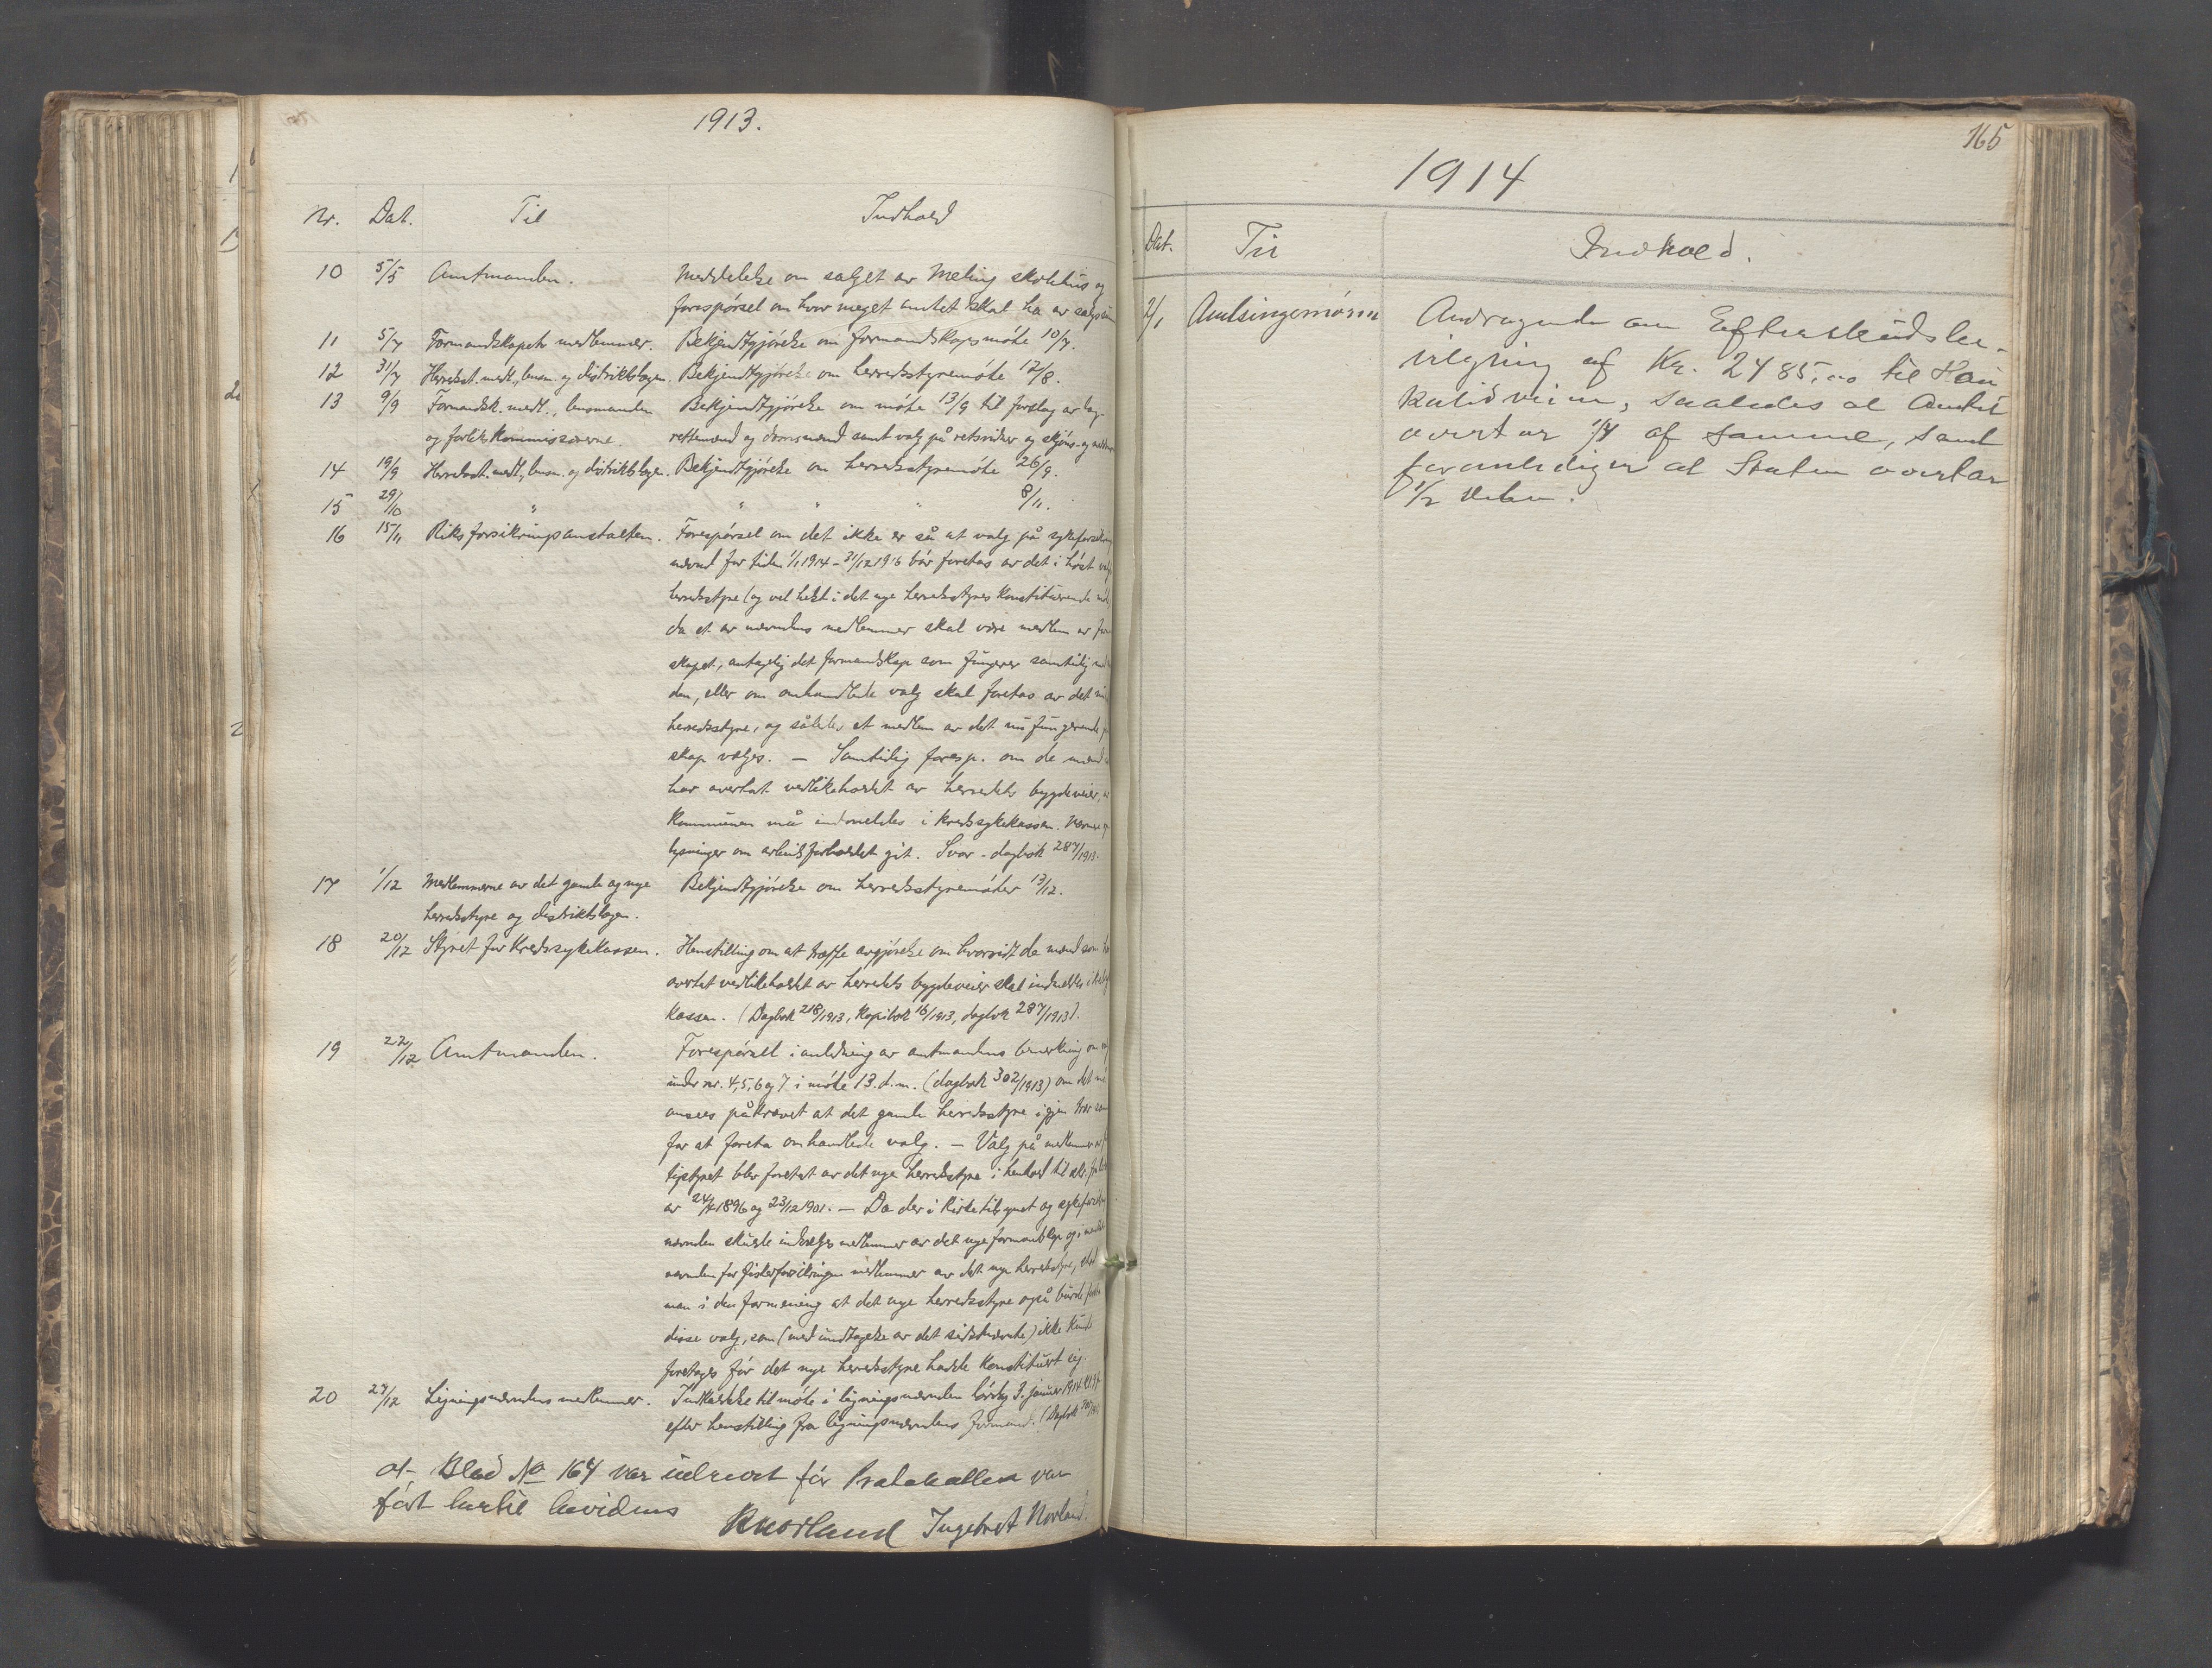 1913.
Nr. Dat. Til Indhold
10 5/5 Amtmanden. Meddelelse om salget av Meling skolehus og
forespørsel om hvor meget amtet skal ha av salgssum
11 5/7 Formandskapets medlemmer. Bekjendtgjørelse om formandskapsmøte 10/7.
12 31/7 Herredsst. medl., lensm. og distriktslægen. Bekjendtgjørelse om herredsstyremøte 12/8.
13 9/9 Formandsk. medl., lensmanden Bekjendtgjørelse om møte 13/9 til forslag av lag-
og forlikskommissærerne. rettemænd og domsmænd samt valg på retsvidner og skjøns- og
14 19/9 Herredsst. medl., lensm. og distriktslægen. Bekjendtgjørelse om herredsstyremøte 26/9.
15 29/10 " " " " 8/11.
16 15/11 Riksforsikringsanstalten. Forespørsel om det ikke er så at valg på sykeforsikrings
nævnd for tiden 1/1 1914 - 31/12 1916 bør foretas av det i høst
herredsstyre (og vel helst i det nye herredsstyres konstituerende
da et av nævndens medlemmer skal være medlem av
skapet, antagelig det formandskap som fungerer samtidig
den, eller om omhandlede valg skal foretas av det
herredsstyre, og således et medlem av det nu fungerende
skap vælges. — Samtidig foresp. om de mænd
har overtat vedlikeholdet av herredets bygdeveier,
kommunen må indmeldes i kredssykekassen. Nærmere
lysninger om arbeidsforholdet git. Svar - dagbok 287/1913.
17 1/12 Medlemmerne av det gamle og nye Bekjendtgjørelse om herredsstyremøter 13/12.
herredsstyre og distriktslægen.
18 20/12 Styret for kredssykekassen. Henstilling om at træffe avgjørelse om hvorvidt de mænd som
overtat vedlikeholdet av herredets bygdeveier skal indmeldes i
kassen. (Dagbok 218/1913, Kopibok 16/1913, dagbok 287/1913).
19 22/12 Amtmanden. Forespørsel i anledning av amtmandens bemerkning om
under nr. 4, 5, 6 og 7 i møte 13. d.m. (dagbok 302/1913) om det
ansees påkrævet at det gamle herredsstyre igjen
for at foreta omhandlede valg. — Valg på medlemmer
ligstyret blev foretat av det nye herredsstyre i henhold til
av 24/4 1896 og 23/12 1901. — Da der i Kirketilsynet og
nævnden skulde indvælges medlemmer av det nye formandskap og i
nævnden for fiskerforsikringen medlemmer av det nye herredsstyre,
man i den formening at det nye herredsstyre også burde
disse valg, som (med undtagelse av det sidstnævnte) ikke kunde
foretages før det nye herredsstyre hadde konstituert sig.
20 27/12 Ligningsnævndens medlemmer. Indkaldelse til møte i ligningsnævnden lørdag 3. januar 1914
efter henstilling fra ligningsnævndens formand. (Dagbok
at Blad No 164 var utrevet før Protokollen var
ført hertil bevidnes
Ingebret Norland.
165
1914
Dat. Til Indhold.
2/1 Amtsingeniøren Andragende om Efterskudsbe-
vilgning af Kr. 2485,00 til
veien, saaledes at Amtet
overtar 1/4 af samme, samt
foranlediger at Staten overtar
1/2 delen.